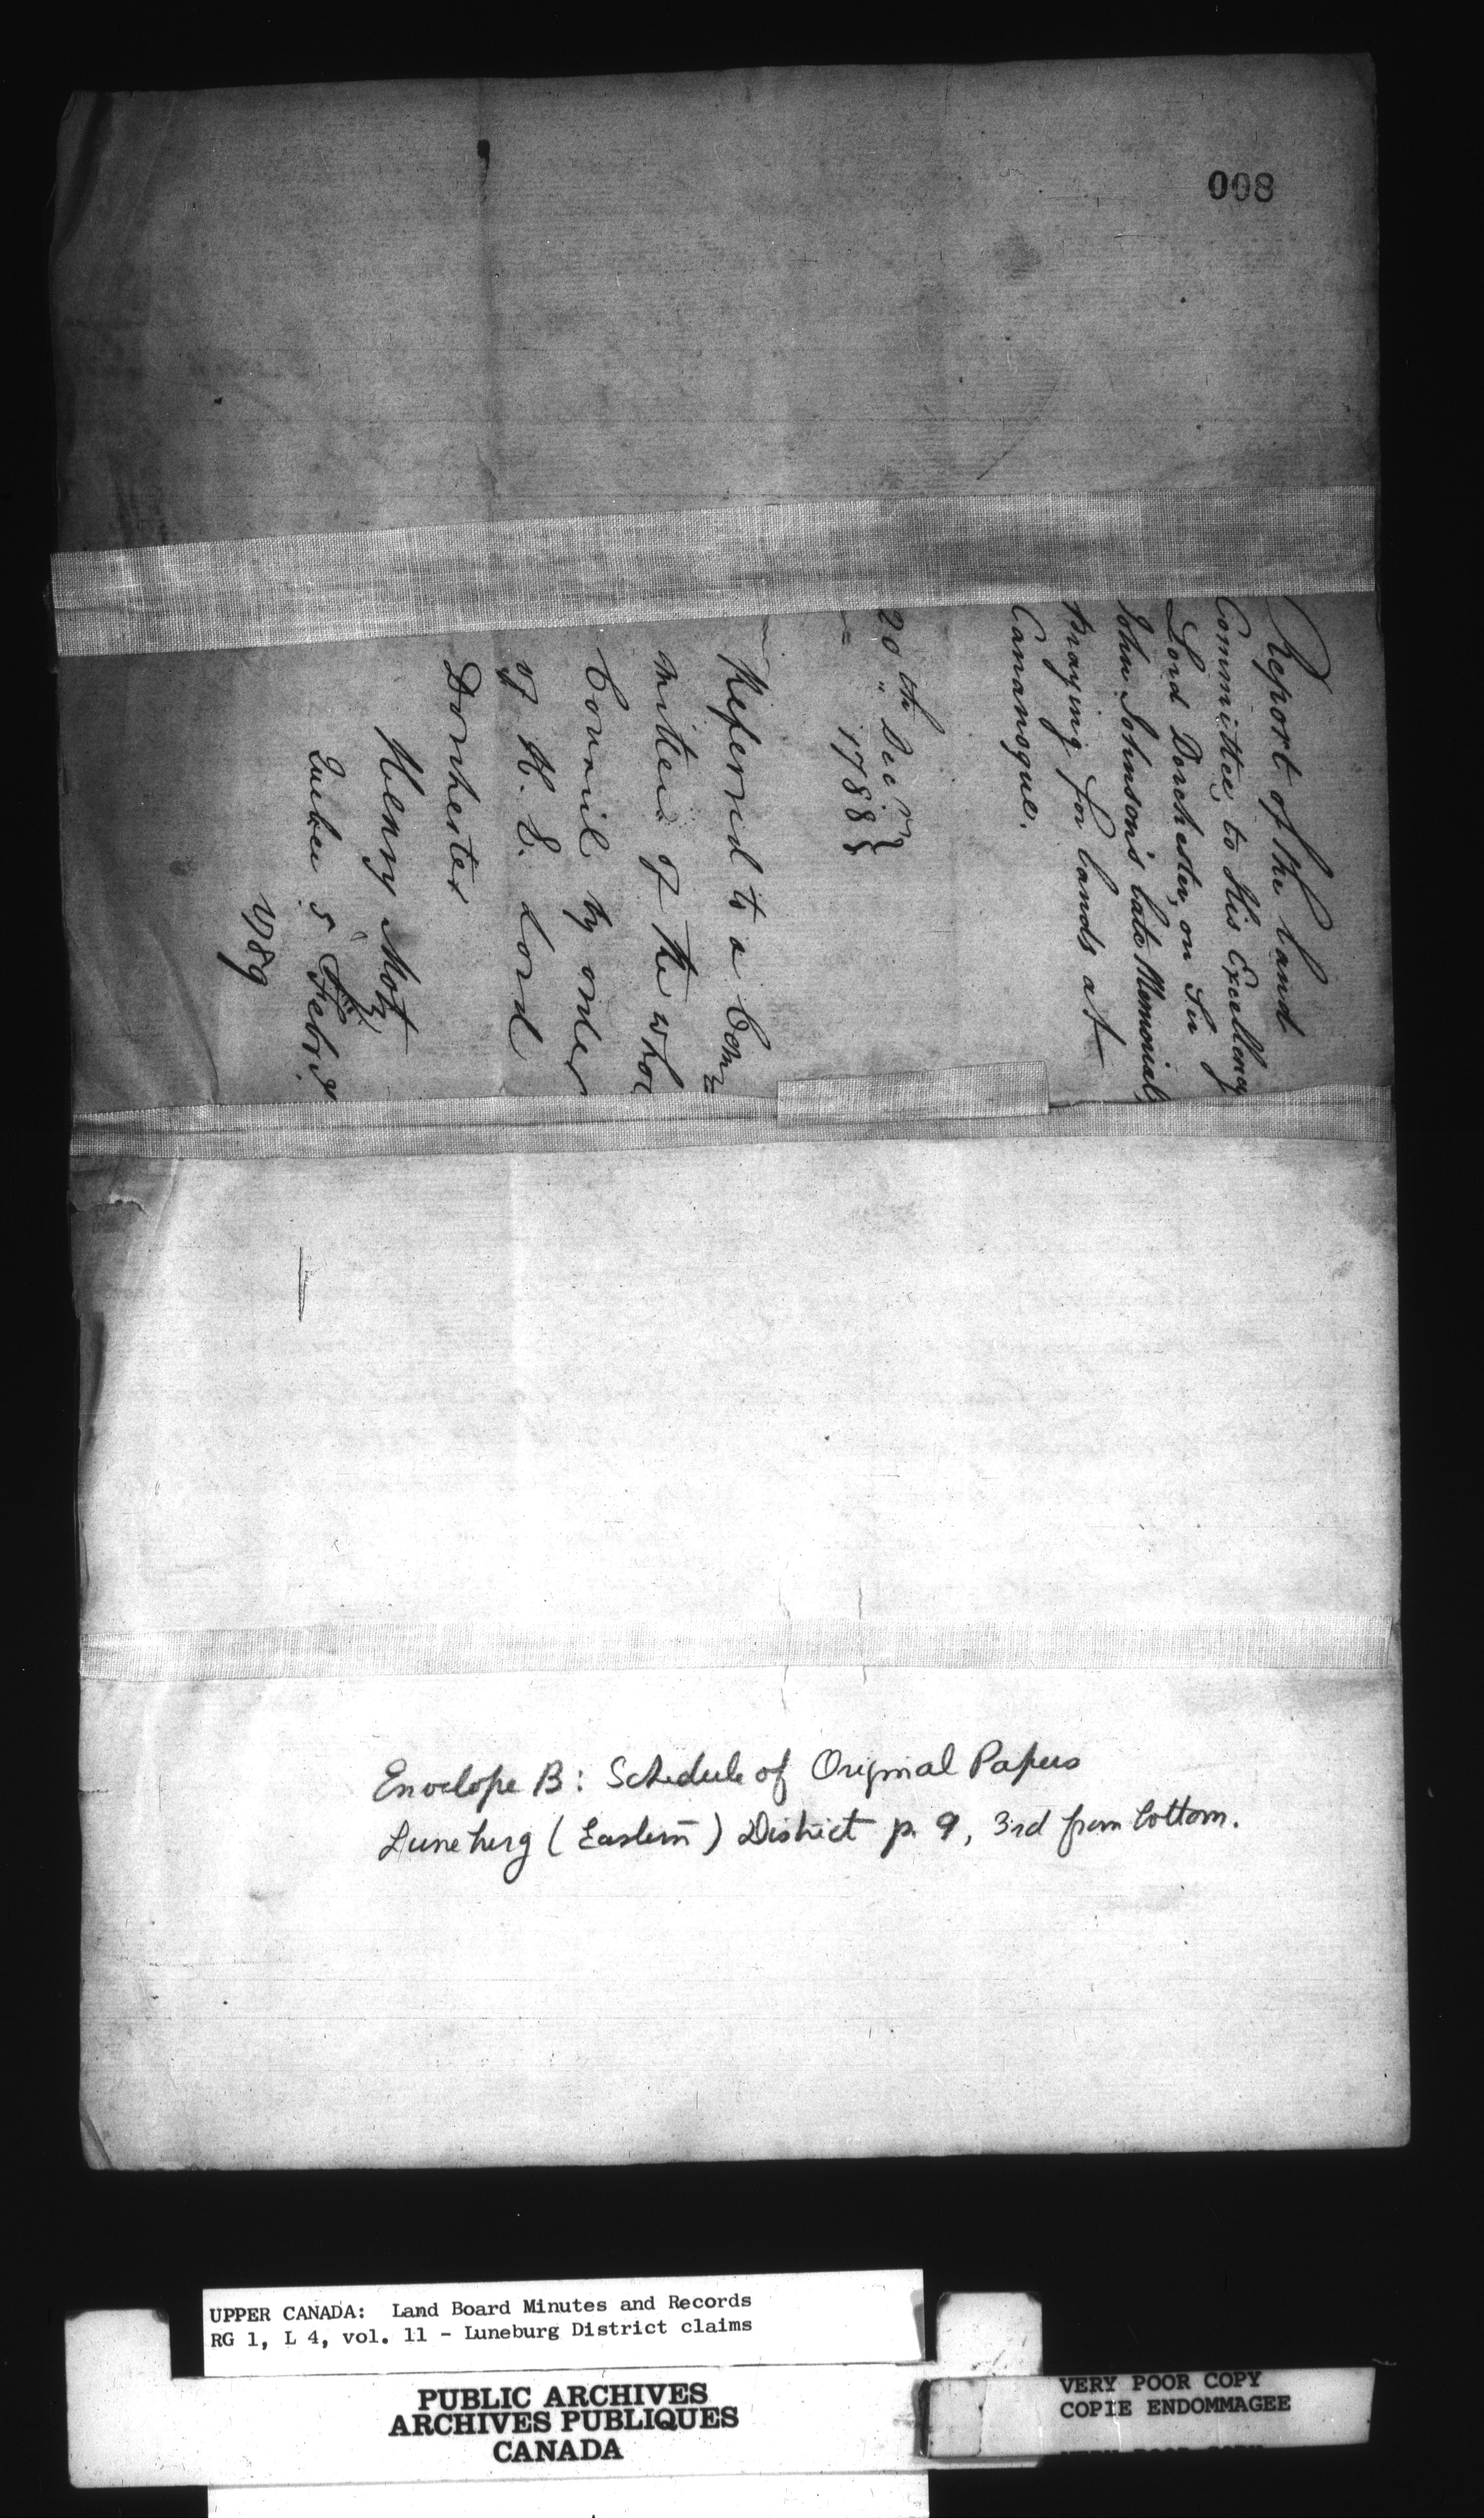 008
Report of the Land
Committee, to His Excellency
Lord Dorchester, on Sir
John Johnson's late Memorial,
praying for Lands at
Cananoque.
20th Decr }
1788 }
Referred to a Com=
mittee of the whole
Council by order
of H. E. Lord
Dorchester
Henry Motz
Quebec 5th Febry
1789
Envelope B: Schedule of Original Papers
Luneberg (Eastern) District p. 9, 3rd from bottom.
UPPER CANADA: Land Board Minutes and Records
RG 1, L 4, vol. 11 - Luneburg District claims
PUBLIC ARCHIVES
ARCHIVES PUBLIQUES
CANADA
VERY POOR COPY
COPIE ENDOMMAGEE
VERY POOR COPY